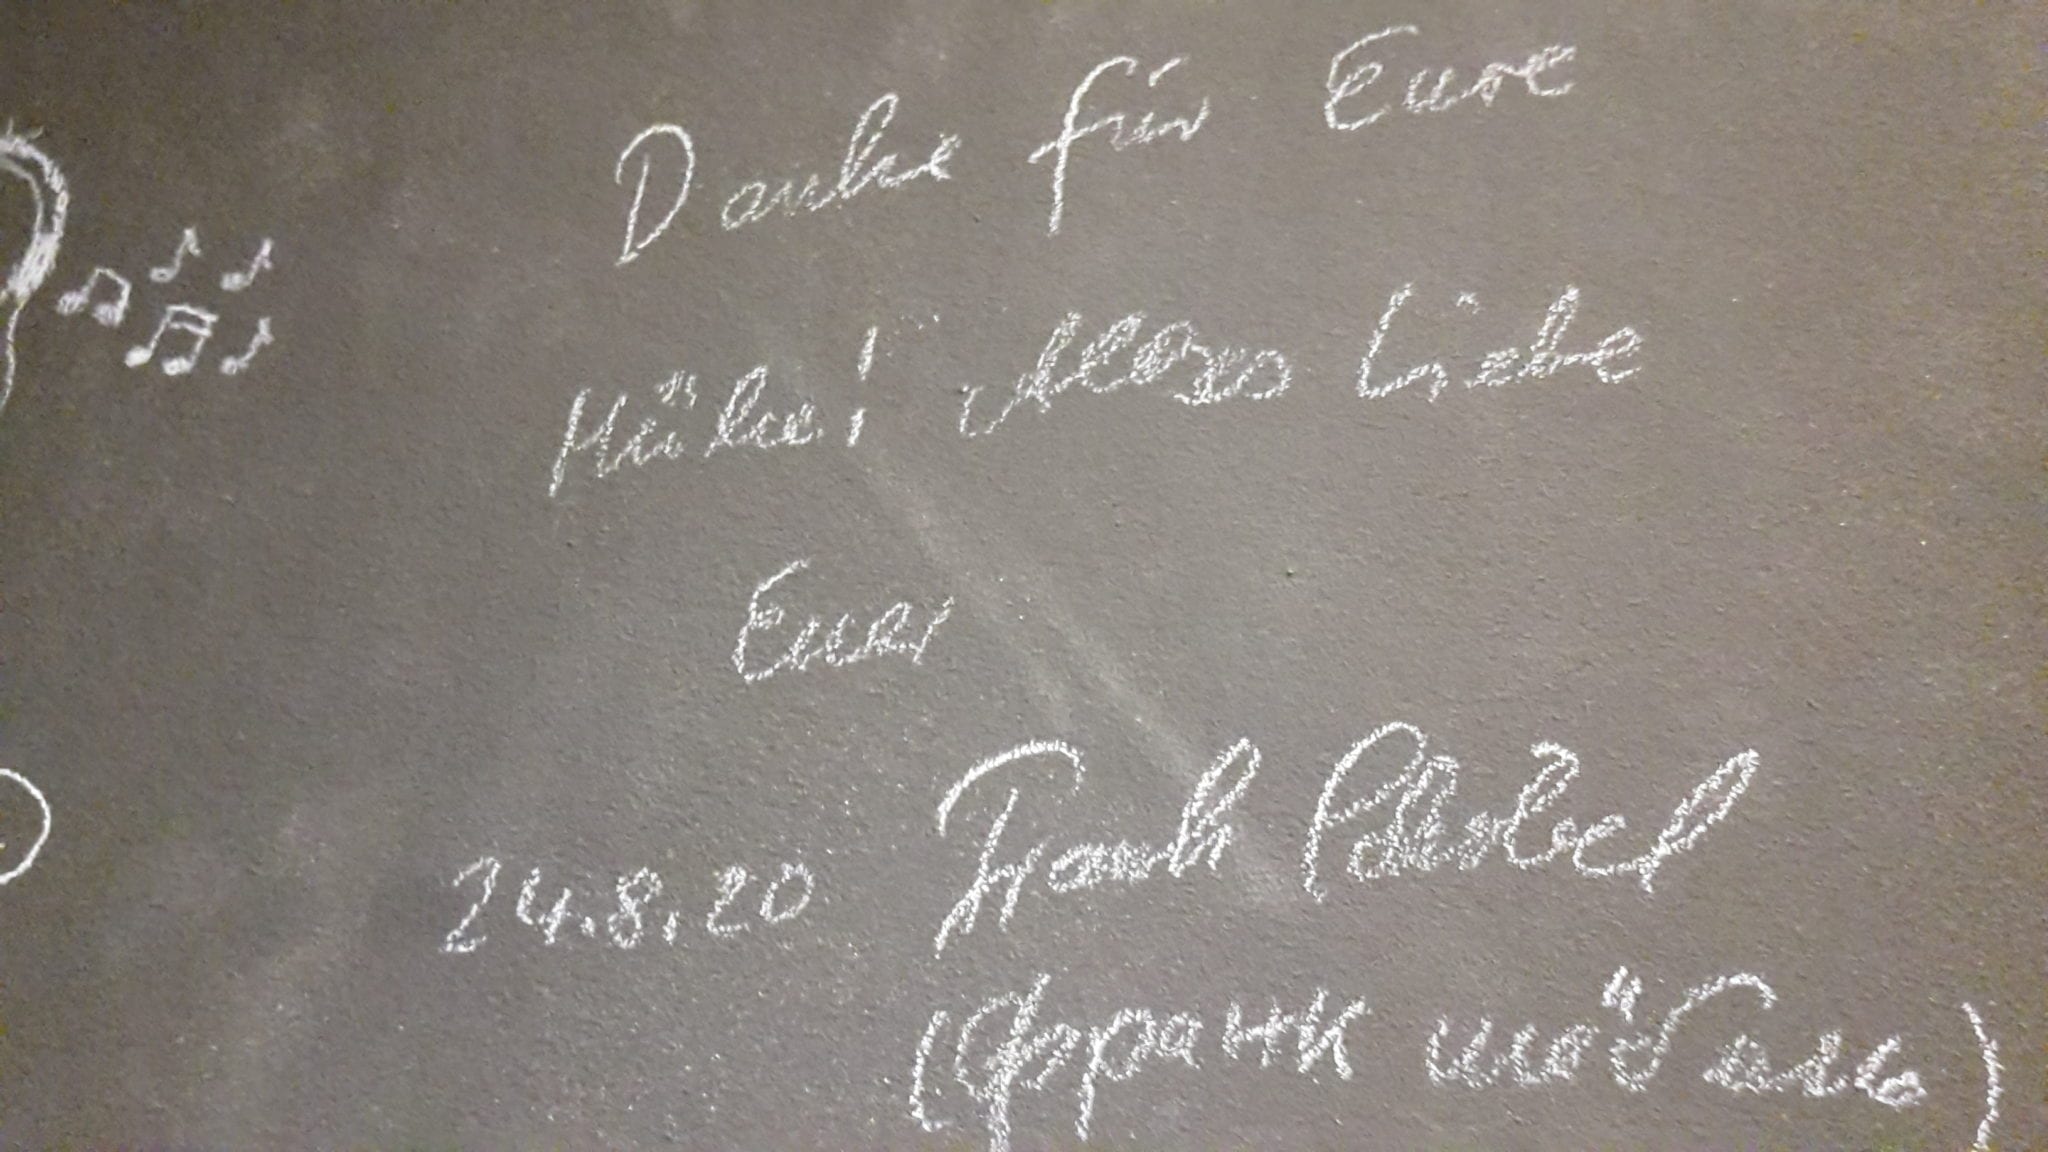 Danke für Eure
Mühe! Alles Liebe
Euer
24.8.20 Frank Schöbel
(Франк шöбаль)